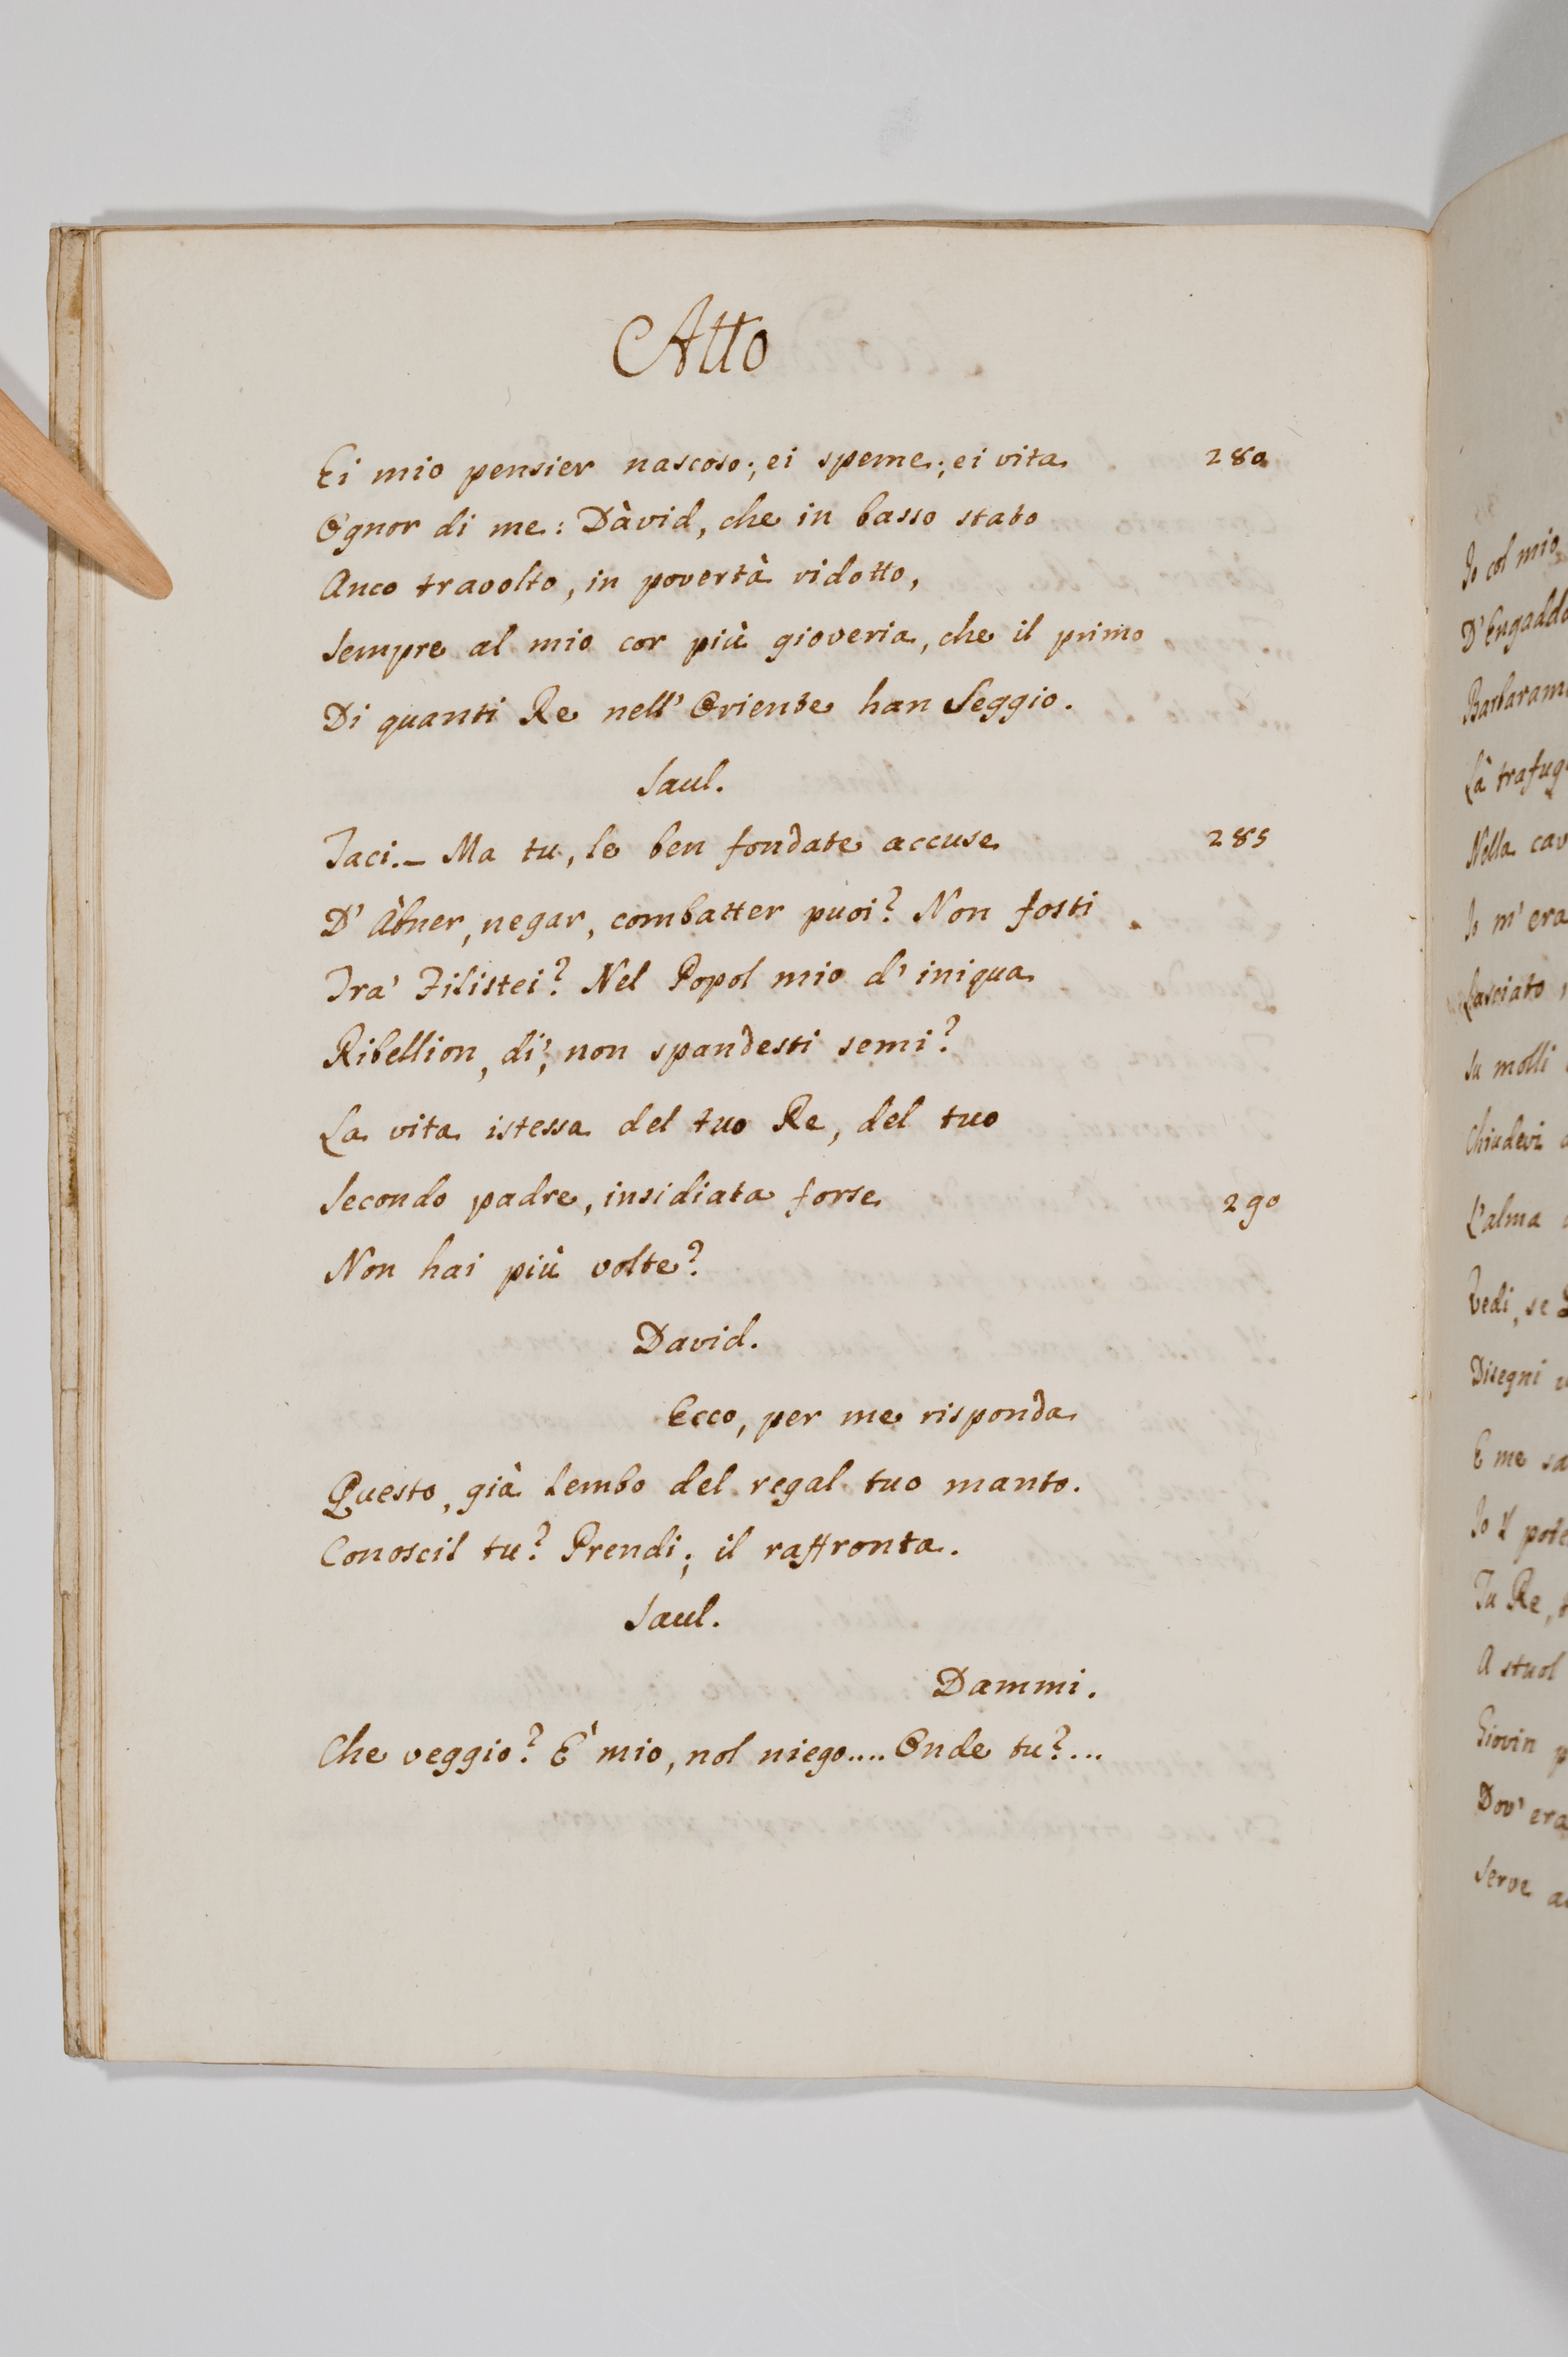 Atto
Ei mio pensier nascoso; ei speme; ei vita 280
Ognor di me: Dàvid, che in basso stato
Anco travolto, in povertà ridotto,
Sempre al mio cor più gioveria, che il primo
Di quanti Re nell' Oriente han Seggio.
Saul.
Taci. – Ma tu, le ben fondate accuse 285
D' Àbner, negar, combatter puoi? Non fosti
Tra' Filistei? Nel Popol mio d' iniqua
Ribellion, di', non spandesti semi?
La vita istessa del tuo Re, del tuo
Secondo padre, insidiata forse 290
Non hai più volte?
David.
Ecco, per me risponda
Questo, già lembo del regal tuo manto.
Conoscil tu? Prendi; il raffronta.
Saul.
Dammi.
Che veggio? È mio, nol niego.... Onde tu?...
Io col mio
D' Engadd
Barbaram
Là trafug
Nella cav
Io m' era
Lasciato,
Su molli
Chiudevi
L' alma
Vedi, se
Disegni
E me sa
Io il pote
Tu Re,
A stuol
Giovin p
Dov' era
Serve a